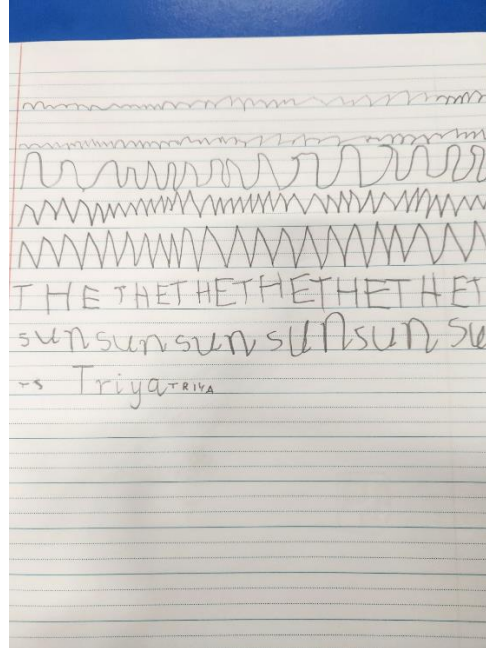 THE THETHETHETHETHET
sunsunsunsunsunsu
-s Triya TRIYA